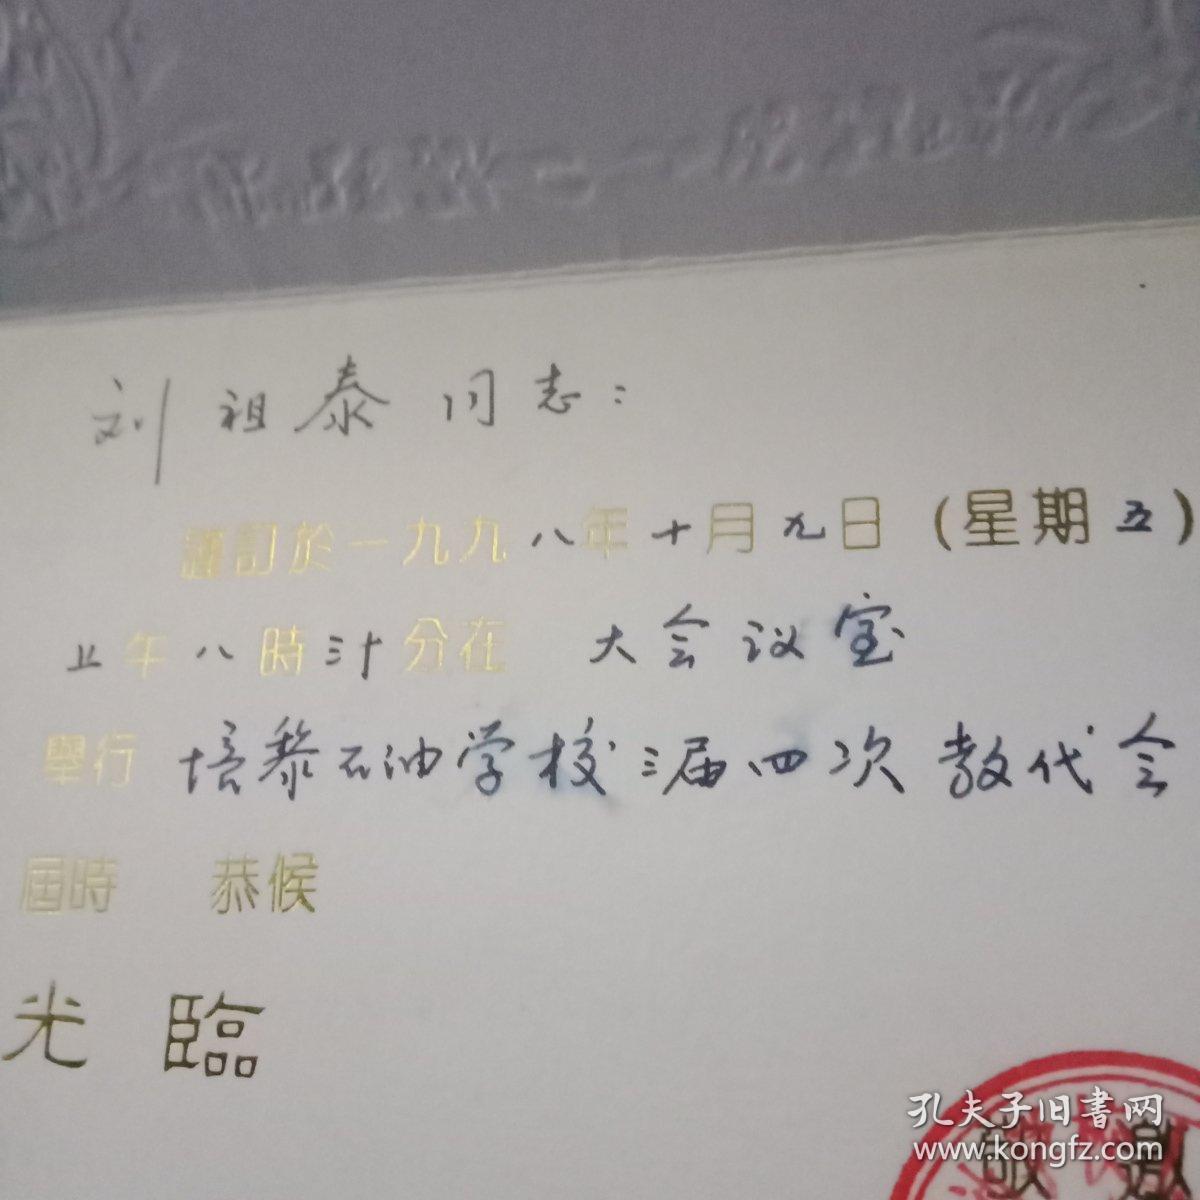 刘祖泰同志：
謹訂於一九九八年十月九日（星期五）
上午八時三十分在 大会议室
舉行 培黎石油学校三届四次教代会
屆時 恭候
光臨
敬邀
孔夫子旧书网
www.kongfz.com